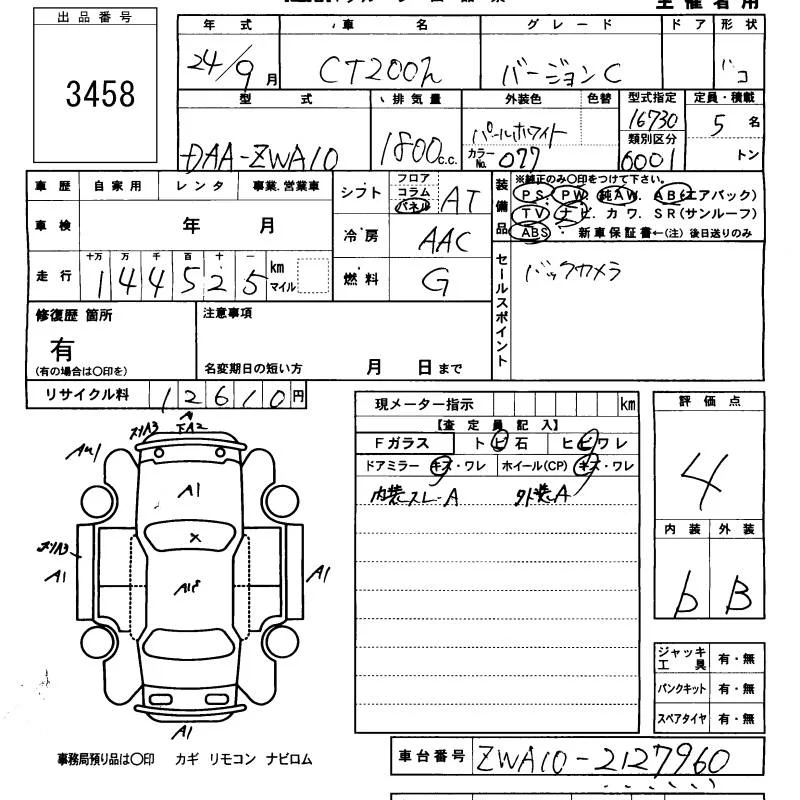 主催者用
出品番号
3458
年式 車名 グレード ドア 形状
24/9月 CT200h バージョンC
型式 排気量 外装色 色替 型式指定 定員・積載
DAA-ZWA10 1800c.c. パールホワイト 16730 5名
カラーNo. 077 類別区分 0001 トン
車歴 自家用 レンタ 事業.営業車
シフト フロア コラム パネル AT
装備品 ※純正のみ○印をつけて下さい。
PS. PW. 純AW. AB(エアバック)
TV ナビ. カワ. SR(サンルーフ)
ABS. 新車保証書←(注) 後日送りのみ
車検 年 月
冷房 AAC
走行 十万 万 千 百 十 一
144525 km マイル
燃料 G
セールスポイント バックカメラ
修復歴 箇所 注意事項
有
(有の場合は○印を) 名変期日の短い方 月 日まで
リサイクル料 12610円
現メーター指示 km
【査定員記入】
Fガラス トビ石 ヒビワレ
ドアミラー キズ・ワレ ホイール(CP) キズ・ワレ
内装スレ-A 外装A
評価点
4
内装 外装
b B
A2
AU1
A1
X
A1 A1
A1
ジャッキ工具 有・無
パンクキット 有・無
スペアタイヤ 有・無
事務局預り品は○印 カギ リモコン ナビロム
車台番号 ZWA10-2127960